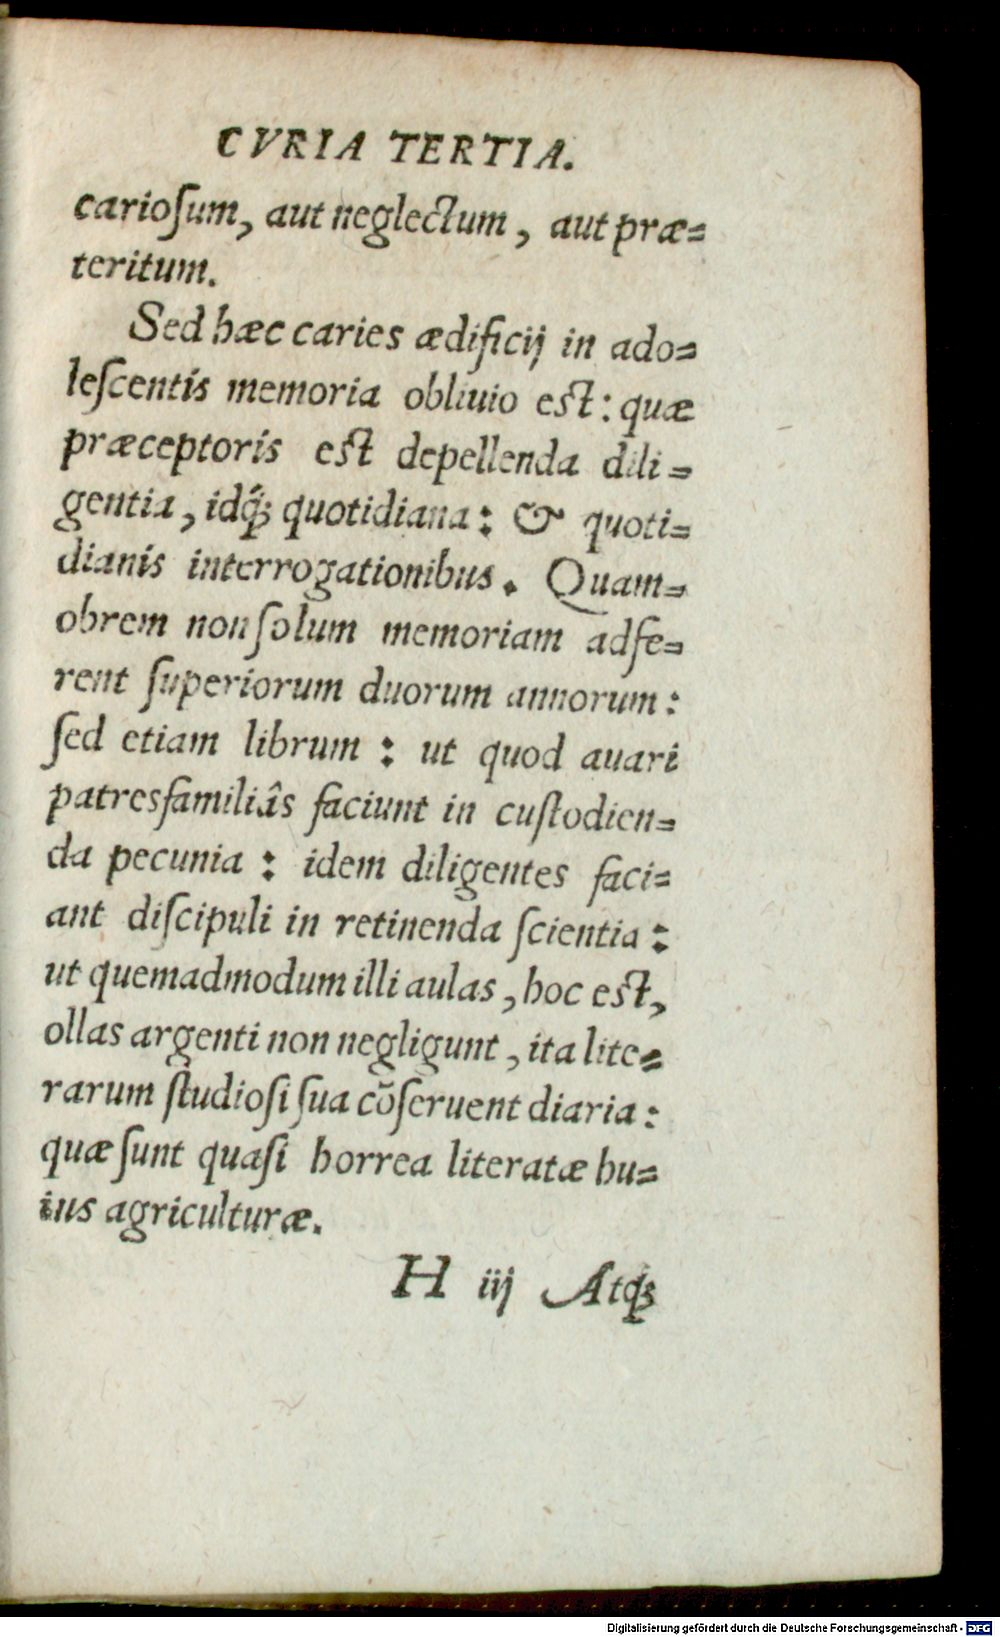 CVRIA TERTIA.
carioſum, aut neglectum, aut præ=
teritum.
Sed hæc caries ædificij in ado=
leſcentis memoria obliuio eſt: quæ
præceptoris eſt depellenda dili=
gentia, idq́; quotidiana: & quoti=
dianis interrogationibus. Quam=
obrem non ſolum memoriam adfe=
rent ſuperiorum duorum annorum:
ſed etiam librum: ut quod auari
patresfamiliâs faciunt in cuſtodien=
da pecunia: idem diligentes faci=
ant diſcipuli in retinenda ſcientia:
ut quemadmodum illi aulas, hoc eſt,
ollas argenti non negligunt, ita lite=
rarum ſtudioſi ſua cõſeruent diaria:
quæ ſunt quaſi horrea literatæ hu=
ius agriculturæ.
H iij Atq;
Digitalisierung gefördert durch die Deutsche Forschungsgemeinschaft - DFG